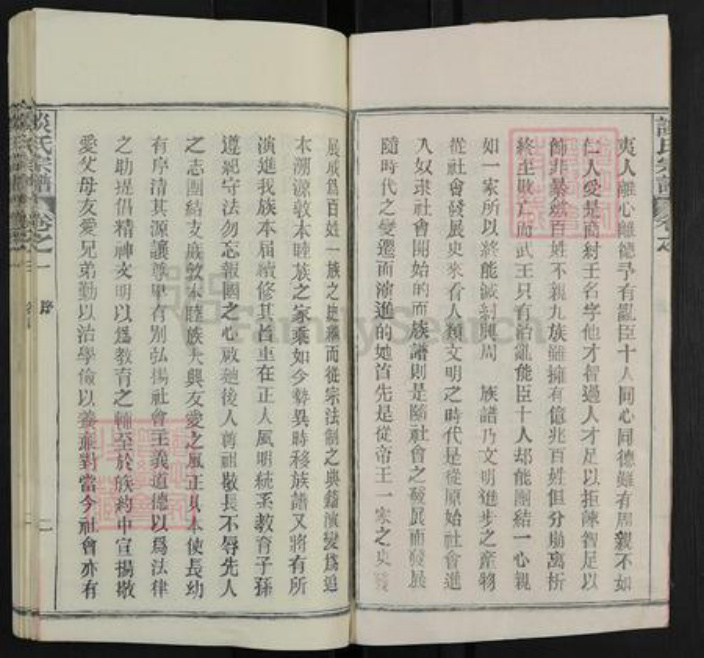 夷人離心離德予有亂臣十人同心同德雖有周親不如
仁人愛是商紂王名字他才智過人才足以拒諫智足以
飾非暴斂百姓不親九族雖擁有億兆百姓但分崩離析
終至敗亡而武王只有治亂能臣十人却能團結一心親
如一家所以終能滅紂興周 族譜乃文明進步之產物
從社會發展史來看人類文明之時代是從原始社會進
入奴隶社會開始的而族譜則是隨社會之發展而發展
隨時代之變遷而演進的她首先是從帝王一家之史發
展成爲百姓一族之史繼而從宗法制之典籍演變爲追
本溯源敦本睦族之家乘如今勢異時移族譜又將有所
演進我族本届續修其旨重在正人風明統系教育子孫
遵紀守法勿忘報國之心啟廸後人尊祖敬長不辱先人
之志團結支庶敦本睦族大興友愛之風正其本使長幼
有序清其源讓尊卑有別弘揚社會主義道德以爲法律
之助提倡精神文明以爲教育之輔至於族約中宣揚敬
愛父母友愛兄弟勤以治學儉以養廉對當今社會亦有
談氏宗譜 卷之一 序 二
FamilySearch